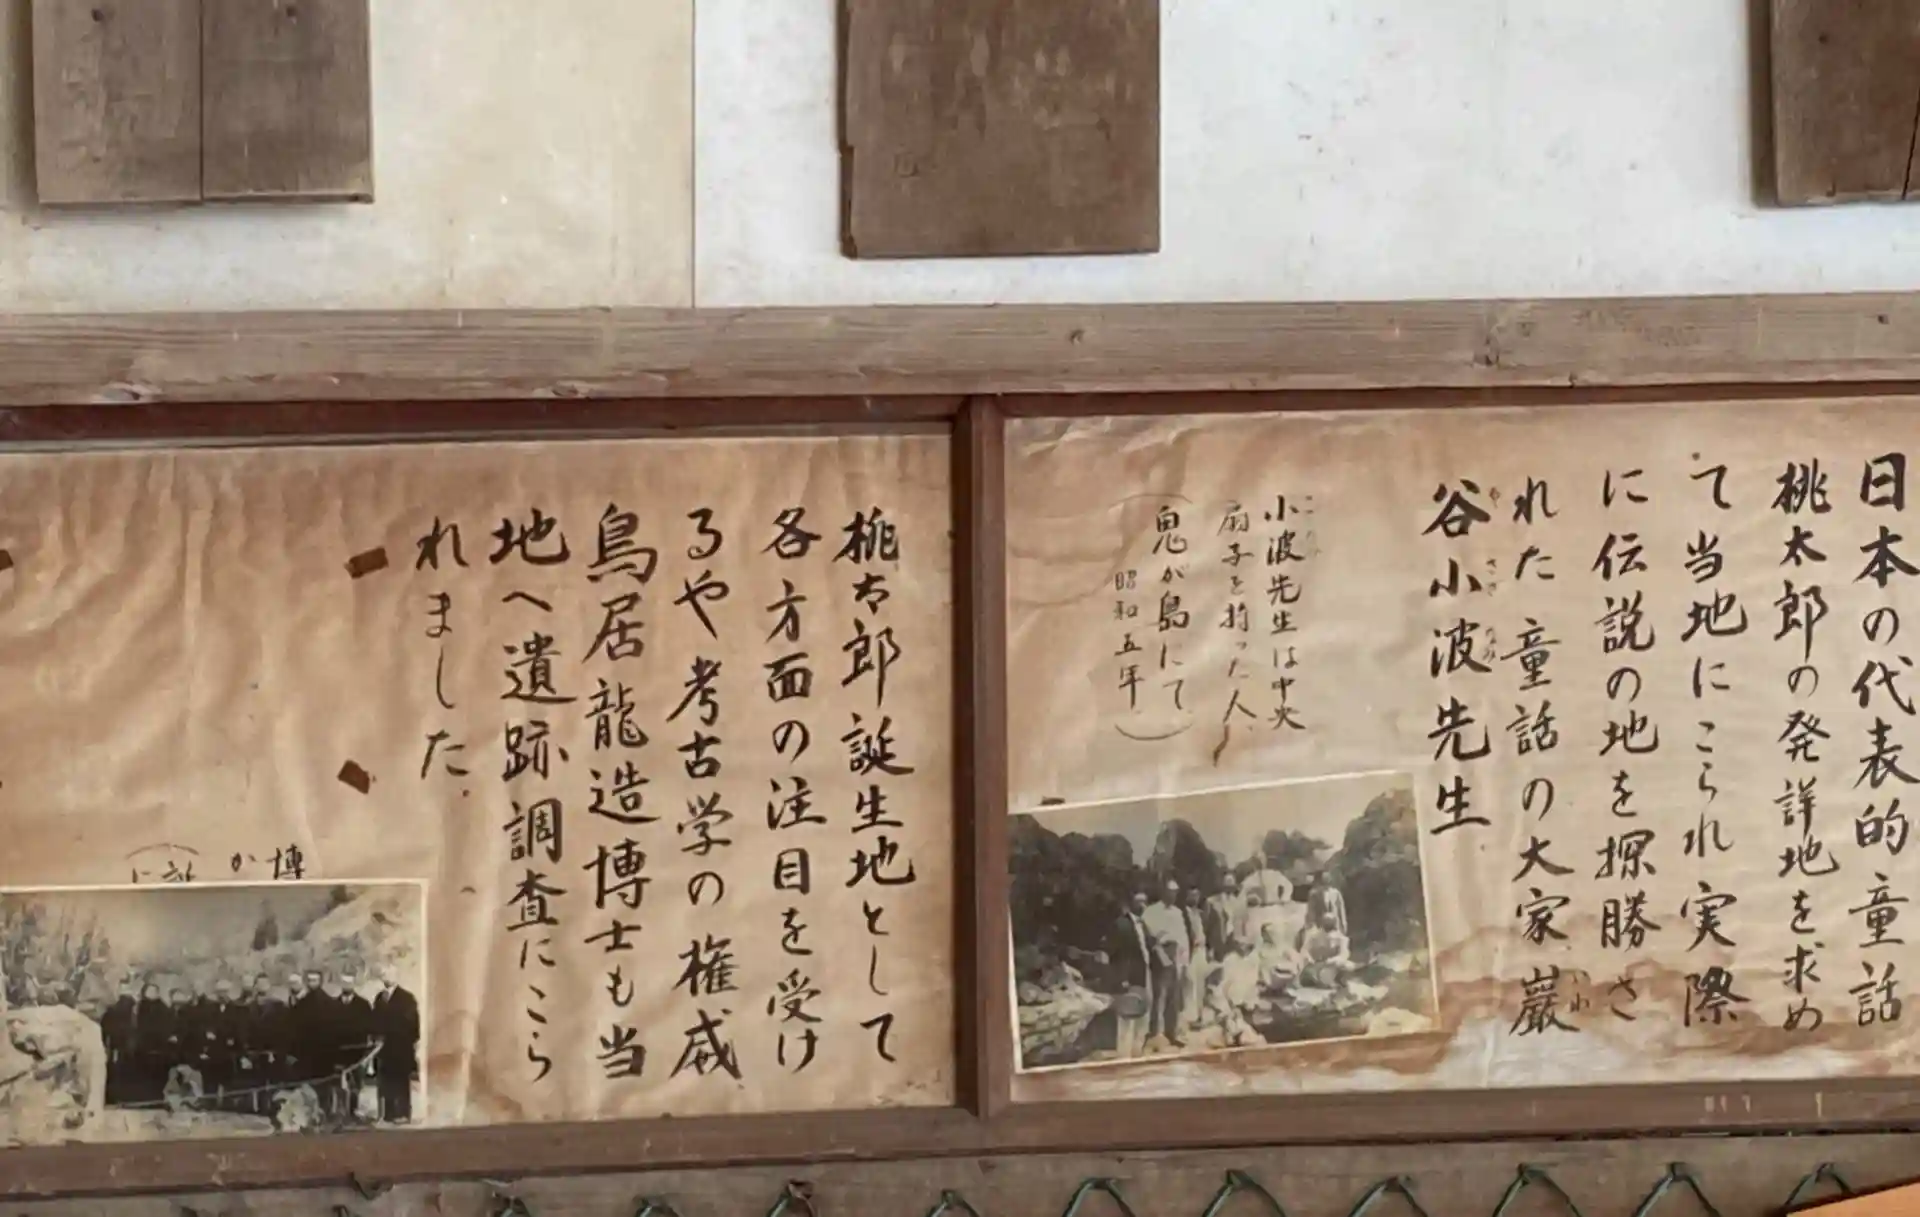 日本の代表的童話
桃太郎の発詳地を求め
て当地にこられ実際
に伝説の地を探勝さ
れた童話の大家巌
いわ
谷小波先生
や さざ なみ
小波先生は中央
扇子を持った人
（鬼が島にて
昭和五年）
桃太郎誕生地として
各方面の注目を受け
るや考古学の権威
鳥居龍造博士も当
地へ遺跡調査にこら
れました
博
か